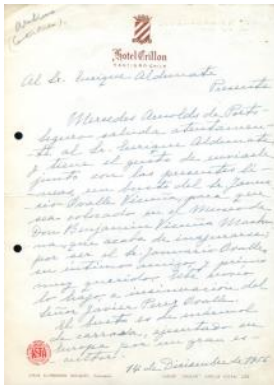 Hotel Crillon
SANTIAGO-CHILE
Al Sr. Enrique Aldunate
Presente
Mercedes Arnolds de Porto
Seguro saluda atentamen-
te al Sr. Enrique Aldunate
y tiene el gusto de enviarle
junto con las presentes lí-
neas, un busto del Sr. Javier
Ovalle Vicuña, para que
sea colocado en el Museo de
Don Benjamin Vicuña Macken-
na que acaba de inaugurarse
por ser el Sr. Ovalle,
su intimo amigo, y primo
muy querido. Este envio
lo hago, a insinuacion del
Señor Javier Perez Ovalle.
El busto es de mármol
de carrara, ejecutado en
Europa por un gran es-
cultor.
14 de Diciembre de 1956